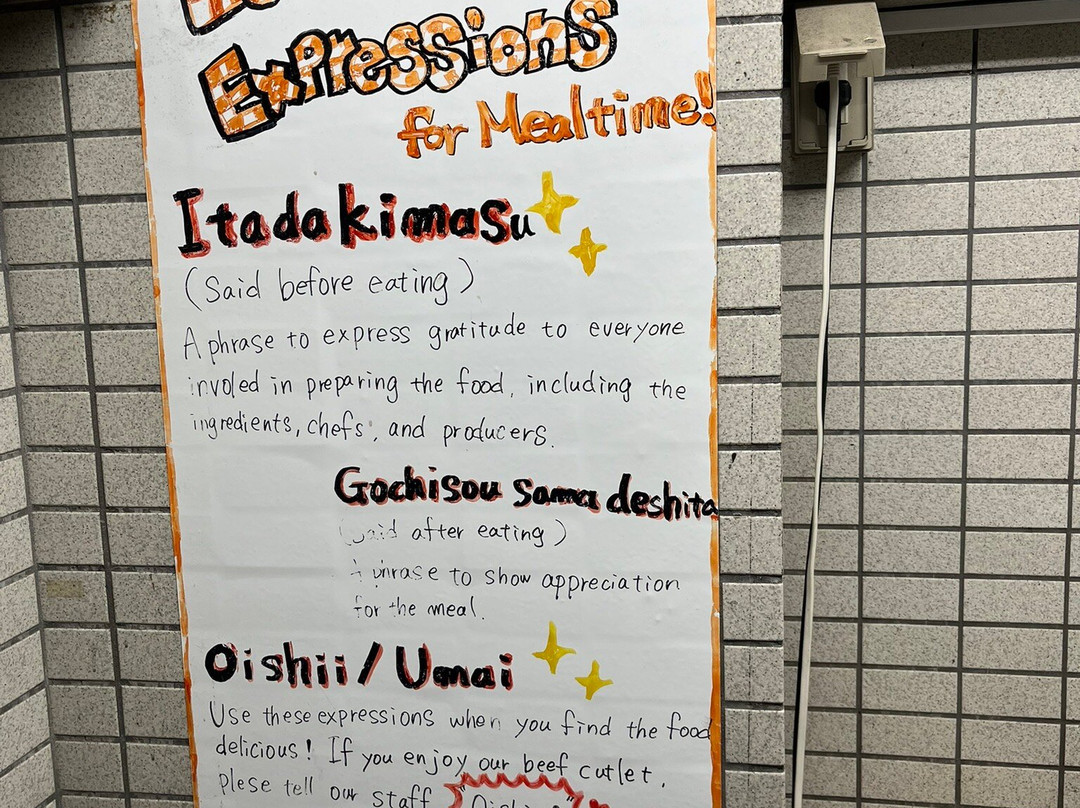 Expressions
for Mealtime!
Itadakimasu
(Said before eating)
A phrase to express gratitude to everyone
involed in preparing the food, including the
ingredients, chefs, and producers.
Gochisou sama deshita
(Said after eating)
A phrase to show appreciation
for the meal.
Oishii / Umai
Use these expressions when you find the food
delicious! If you enjoy our beef cutlet,
Plese tell our staff